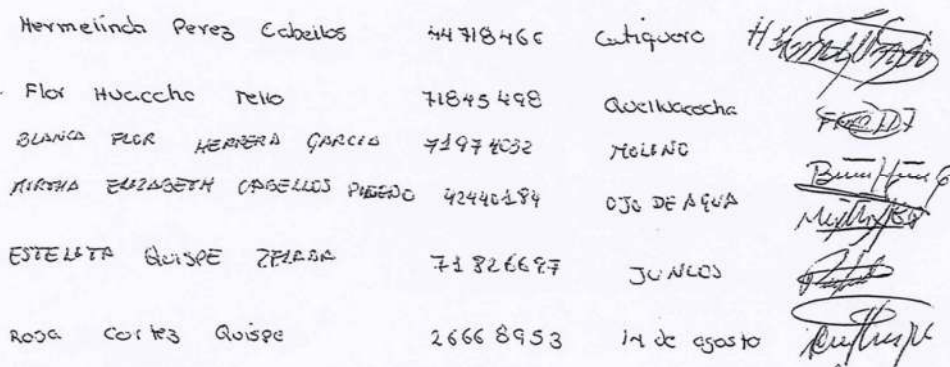 Hermelinda Perez Cabellos 44718466 Cutiquero
Flor Huaccha Tello 71845498 Quelluacocha
BLANCA FLOR HERRERA GARCIA 71974032 MOLINO
MIRTHA ELIZABETH CABELLOS PINEDO 42440184 OJO DE AGUA
ESTELITA QUISPE ZELADA 71826697 JUNCOS
Rosa Cortez Quispe 26668953 14 de agosto